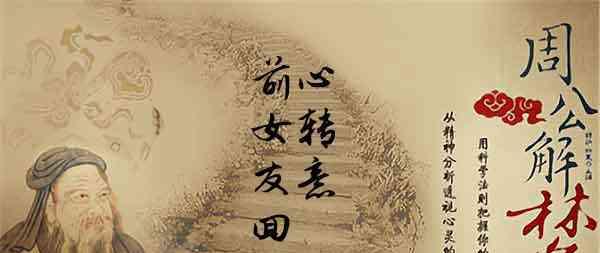 前女友回
心转意
周公解梦
用科学法则把握你的
从精神分析透视心灵的